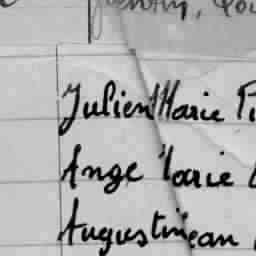 Julien Marie
Ange Marie
Augustin Jean